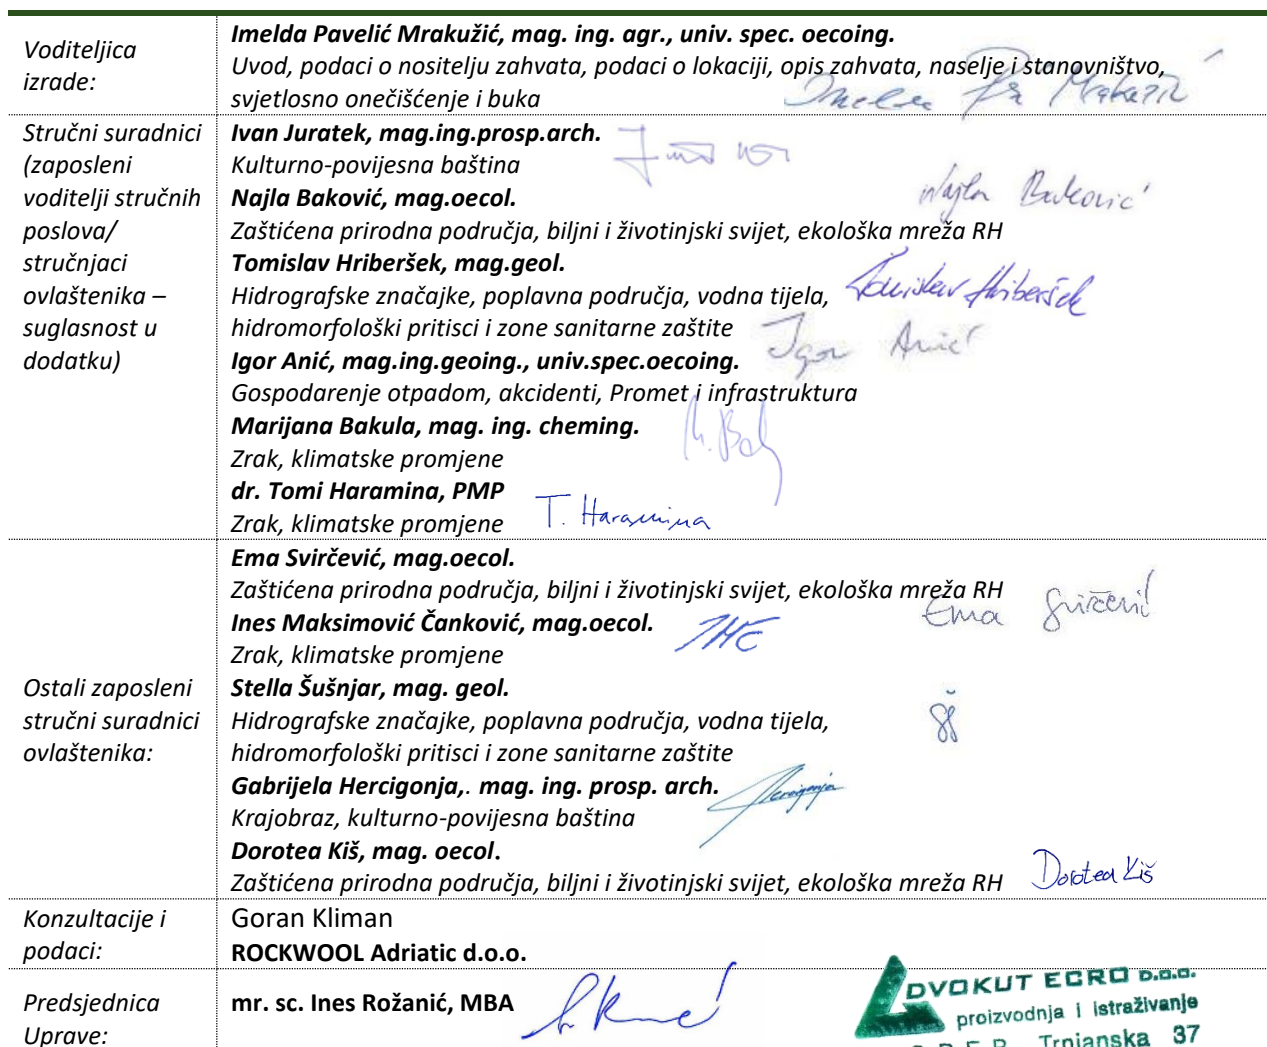 Voditeljica
izrade:
Imelda Pavelić Mrakužić, mag. ing. agr., univ. spec. oecoing.
Uvod, podaci o nositelju zahvata, podaci o lokaciji, opis zahvata, naselje i stanovništvo,
svjetlosno onečišćenje i buka
Stručni suradnici
(zaposleni
voditelji stručnih
poslova/
stručnjaci
ovlaštenika –
suglasnost u
dodatku)
Ivan Juratek, mag.ing.prosp.arch.
Kulturno-povijesna baština
Najla Baković, mag.oecol.
Najla Baković
Zaštićena prirodna područja, biljni i životinjski svijet, ekološka mreža RH
Tomislav Hriberšek, mag.geol.
Hidrografske značajke, poplavna područja, vodna tijela,
Tomislav Hriberšek
hidromorfološki pritisci i zone sanitarne zaštite
Igor Anić
Igor Anić, mag.ing.geoing., univ.spec.oecoing.
Gospodarenje otpadom, akcidenti, Promet i infrastruktura
Marijana Bakula, mag. ing. cheming.
Zrak, klimatske promjene
dr. Tomi Haramina, PMP
Zrak, klimatske promjene
T. Haramina
Ostali zaposleni
stručni suradnici
ovlaštenika:
Ema Svirčević, mag.oecol.
Zaštićena prirodna područja, biljni i životinjski svijet, ekološka mreža RH
Ema Svirčević
Ines Maksimović Čanković, mag.oecol.
Zrak, klimatske promjene
Stella Šušnjar, mag. geol.
Hidrografske značajke, poplavna područja, vodna tijela,
hidromorfološki pritisci i zone sanitarne zaštite
Gabrijela Hercigonja,. mag. ing. prosp. arch.
Hercigonja
Krajobraz, kulturno-povijesna baština
Dorotea Kiš, mag. oecol.
Zaštićena prirodna područja, biljni i životinjski svijet, ekološka mreža RH
Dorotea Kiš
Konzultacije i
podaci:
Goran Kliman
ROCKWOOL Adriatic d.o.o.
Predsjednica
Uprave:
mr. sc. Ines Rožanić, MBA
DVOKUT ECRO D.O.O.
proizvodnja i istraživanje
Trnjanska 37